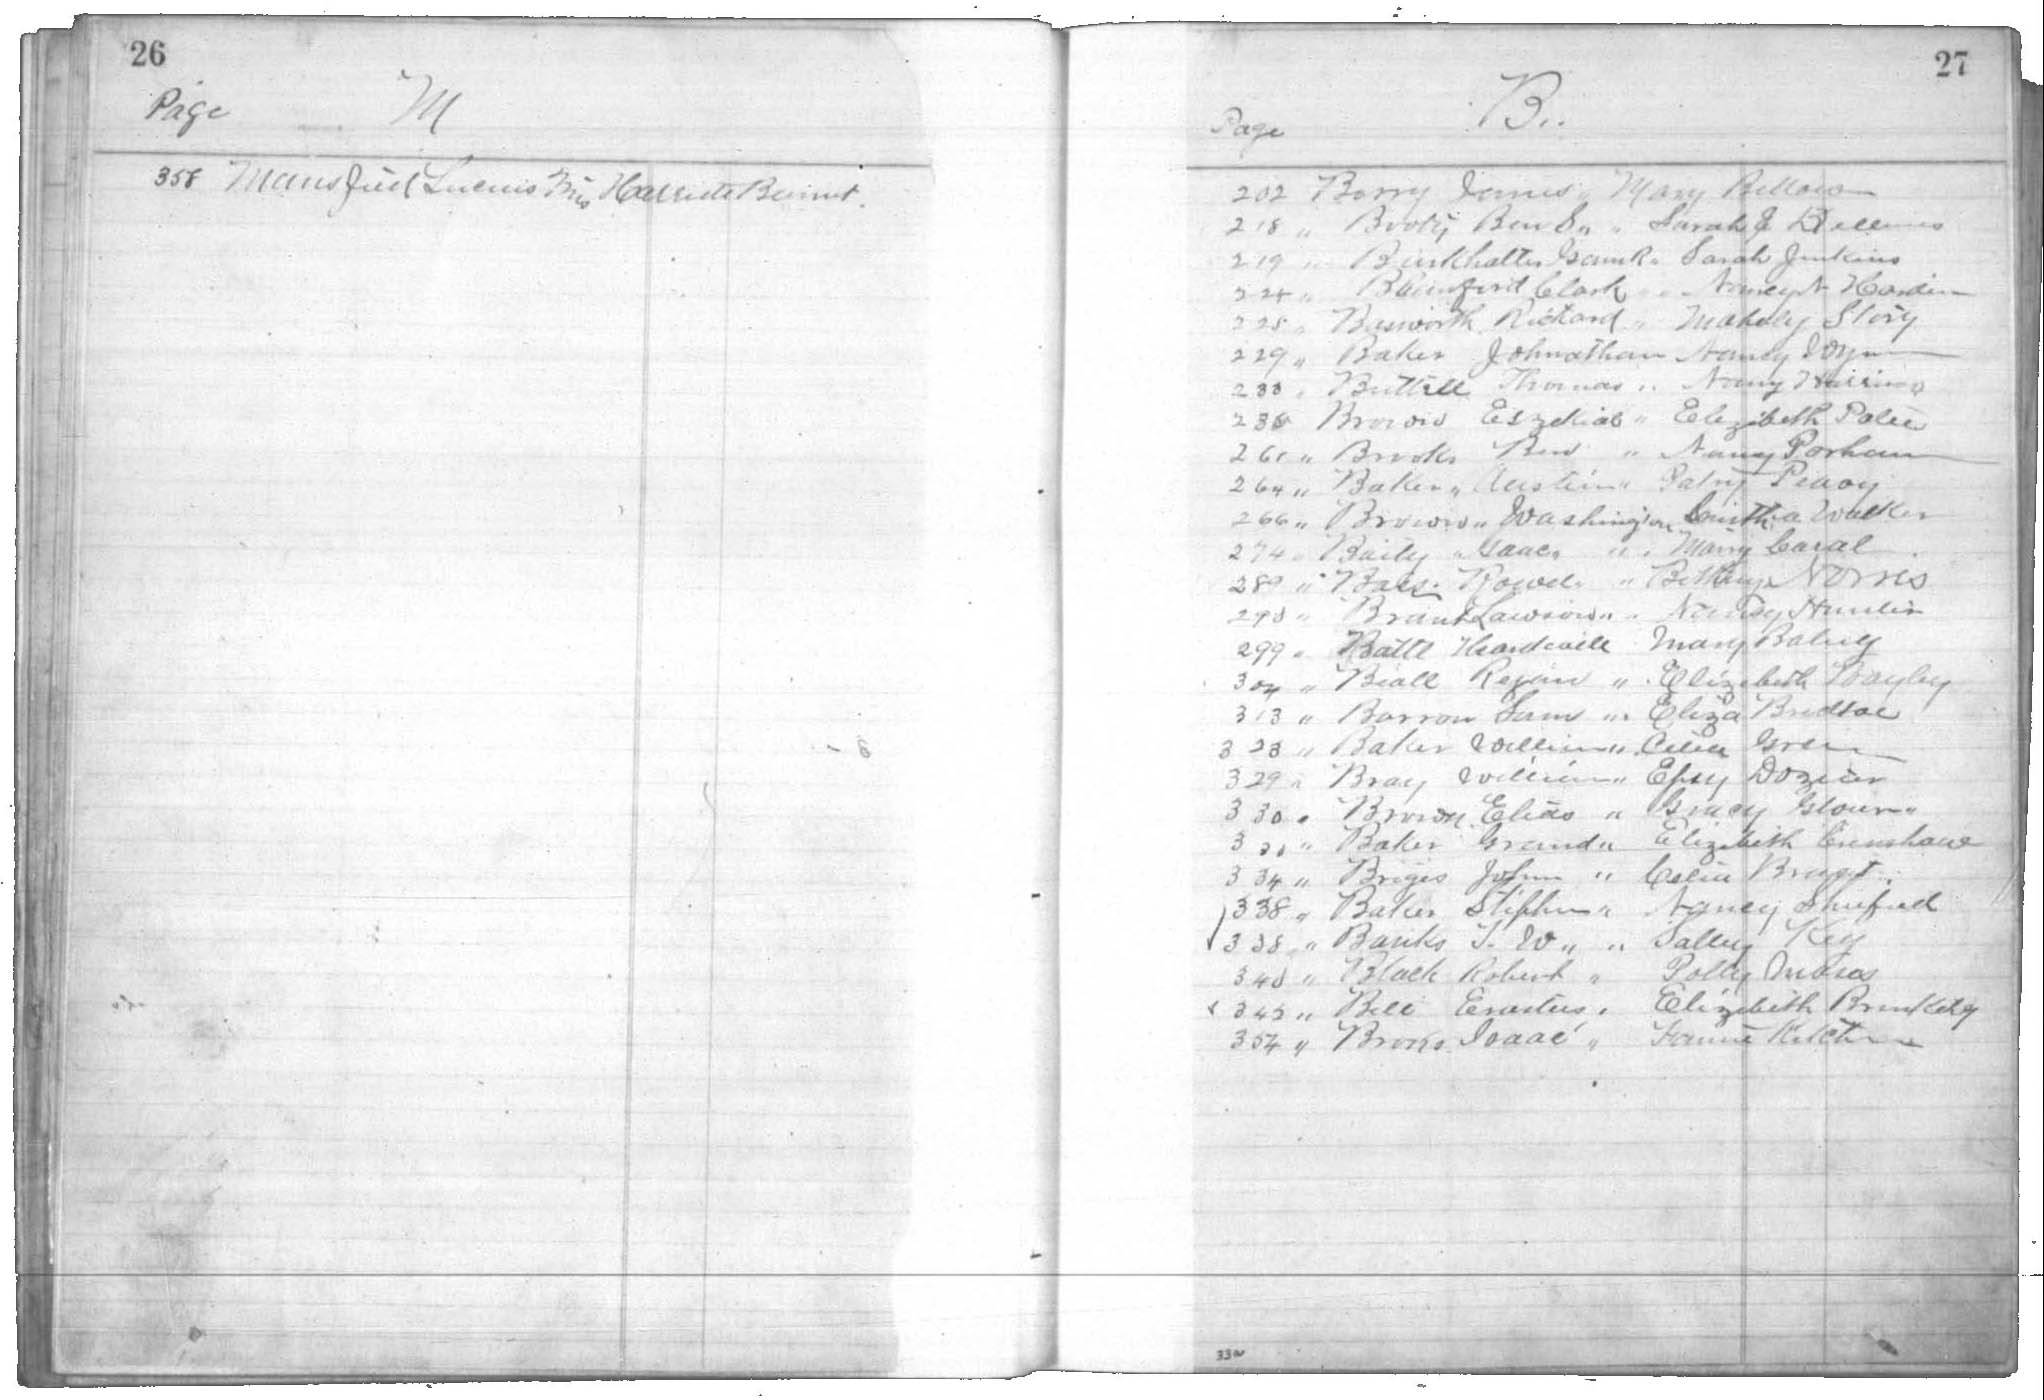 26
Page M
358 Mansfield Lucius Mrs Harriete Bennet.
27
Page B.
202 Barry James " Mary Bellows
218 " Booty Ben S " " Sarah J
219 " Burkhalter Isaac R " Sarah Jenkins
224 " Clark " " Nancy N Hardin
225 " Bosworth Richard " Mahaly Story
229 " Baker Johnathan Nancy Wynn
233 " Buttrll Thomas " Nancy
236 Brown Eszekial " Elezibeth
261 " Brooks Ben " Nancy Parham
264 " Baker " Austin " Patsy Peavy
266 " Brown " Washington Walker
274 " Baity " Isaac " " Mary Caral
289 " Bass Rowel " Bethany Norris
298 " Lawson " " Nancy Hamlin
299 " Battle Mary Bailey
304 " Beall " Elizebeth Bayley
313 " Barron Sam " " Eliza Bledsoe
323 " Baker William " Celia Green
329 " Bray William " Epsy Dozier
330 " Brown Elias " Gracy Glover "
331 " Baker Grand " Elizebeth Crenshaw
334 " Briges John " Celia Bryant
338 " Baker Stephen " Nancy
338 " Banks T. W " " Salley Key
340 " Black Robert " Polly
345 " Bell Erastus " Elizebeth
354 " Brooks Isaac " Fannie Kitchen
33